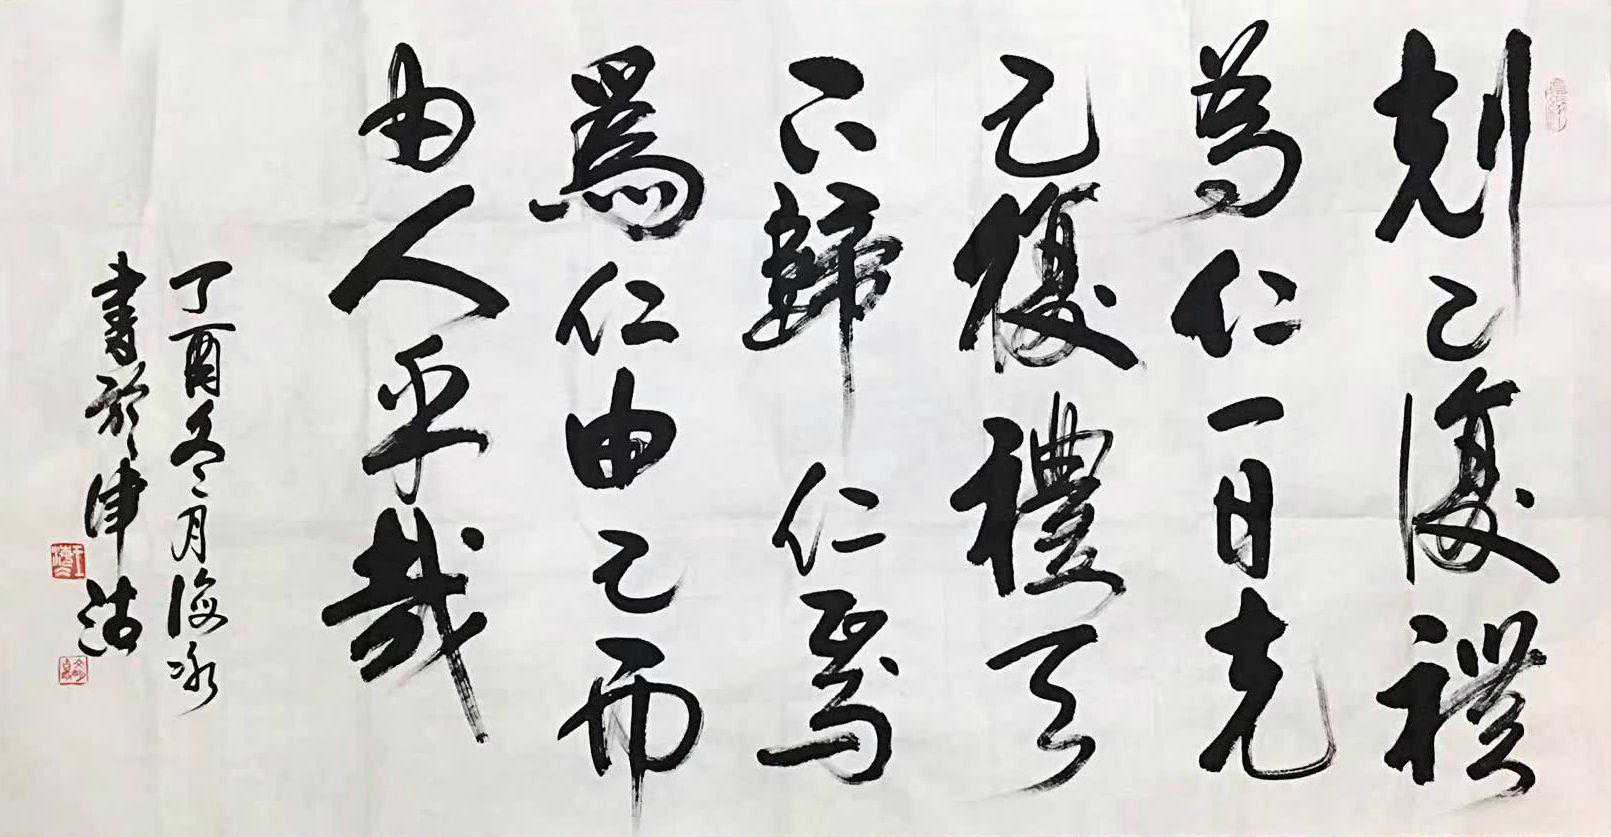 剋己復禮
為仁一日克
己復禮天
下歸仁焉
爲仁由己而
由人乎哉
丁酉冬月海冰
書於津沽